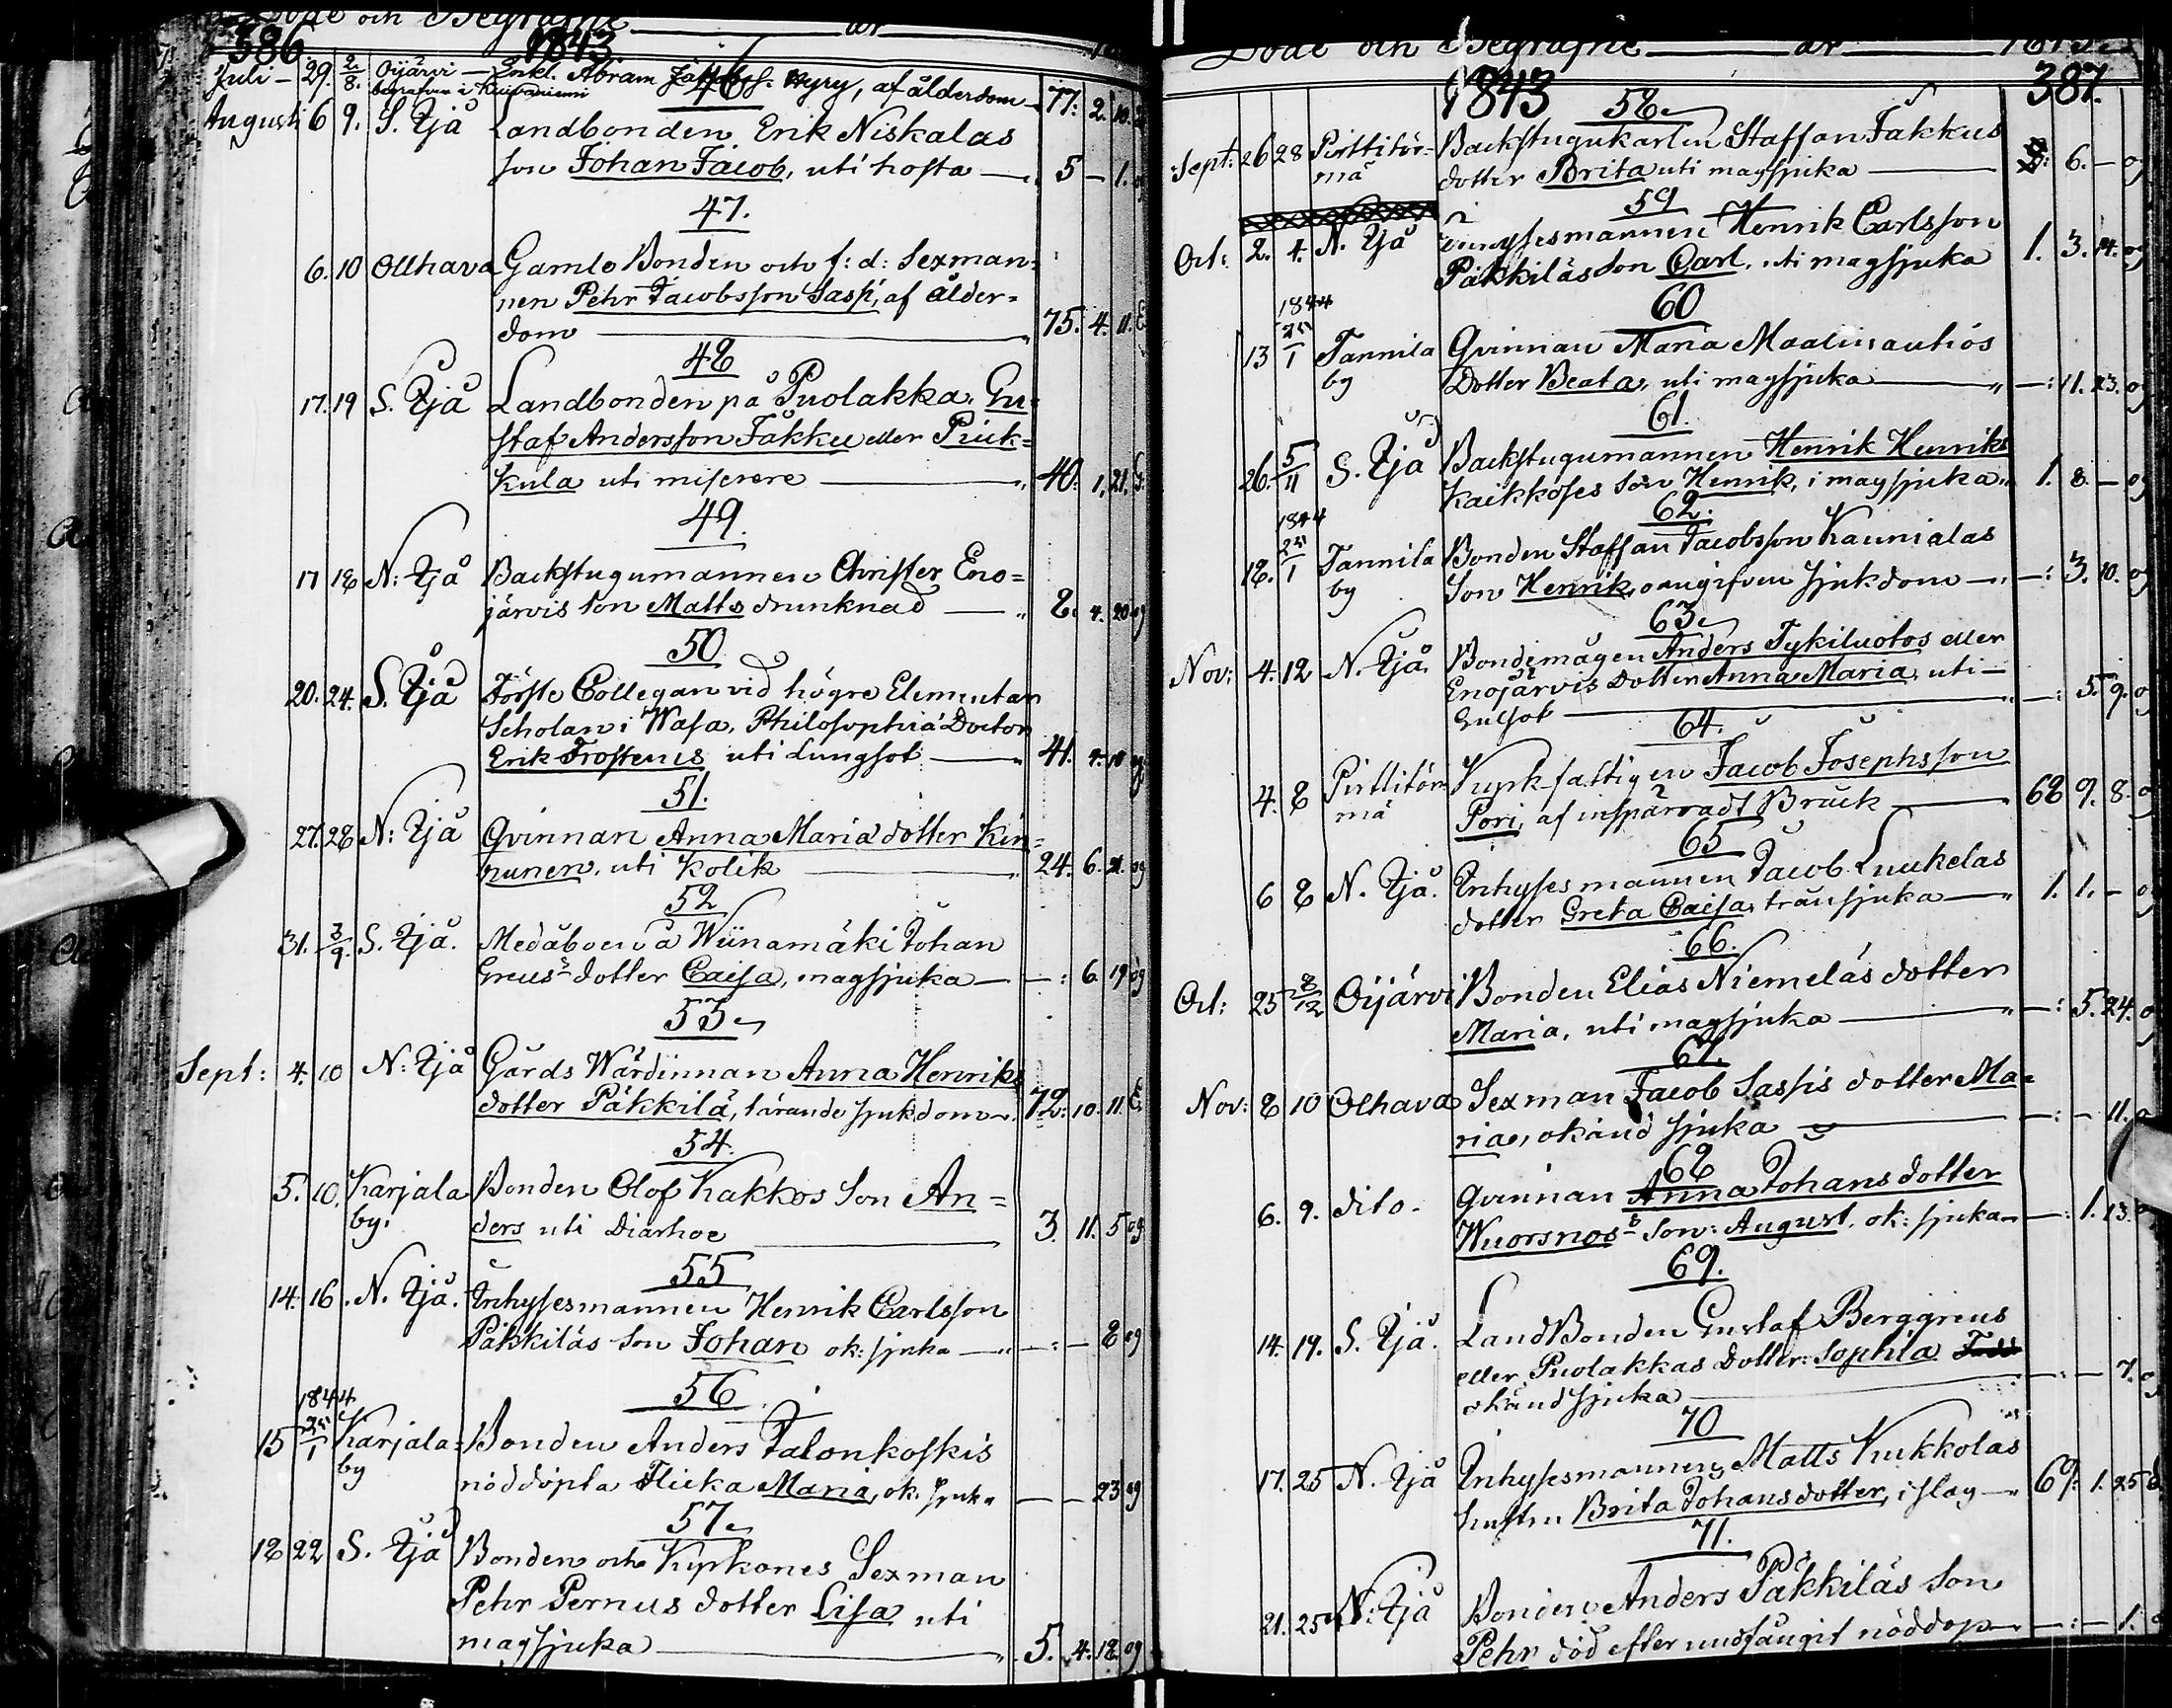 Döde och Begrafne år
386 1843
Juli 29. 2/8. Oijärvi Enkl. Abram Jakobss. Hyry, af ålderdom 77. 2. 10.
begrafven i Kuivaniemi
46
Augusti 6 9. S. Ijå Landbonden Erik Niskalas
son Johan Jacob, uti hosta 5 — 1.
47.
6. 10 Ollhava Gamle Bonden och f: d: Sexman-
nen Pehr Jacobsson Saspi, af ålder-
dom 75. 4. 11. E
48
17. 19 S. Ijå Landbonden på Puolakka, Gu-
staf Andersson Jakku eller Pruk-
kula uti miserere 40. 1. 21. G.
49.
17 18 N: Ijå Backstugumannen Christer Eno-
järvis son Matts drunknad 8. 4. 20 og
50
20. 24. S. Ijå Förste Collegan vid högre Elementar
Scholan i Wasa, Philosophiæ Doctor
Erik Frosterus uti Lungsot 41. 4. 10 og
51.
27. 28 N: Ijå Qvinnan Anna Maria dotter Kin-
nunen, uti Kolik 24. 6. 21. og
52
31. 3/9. S. Ijå. Medåboen å Wiinamäki Johan
Greus dotter Caisa, magsjuka — : 6. 19 og
53
Sept: 4. 10 N: Ijå Gårds Wärdinnan Anna Henriks
dotter Päkkilä, tärande sjukdom 72. 10. 11. E.
54.
5. 10. Karjala Bonden Olof Kakkos Son An-
by. ders uti Diarhoe 3. 11. 5 og
55
14. 16. N. Ijå. Inhysesmannen Henrik Carlsson
Päkkiläs Son Johan ok: sjuka — : — 8 og
56
1844
15 25/1 Karjala Bonden Anders Jalonkoskis
by nöddöpta Flicka Maria, ok. sjuka — — 23 og
57
18 22 S. Ijå Bonden och Kyrkones Sexman
Pehr Pernus dotter Lisa uti
magsjuka 5. 4. 18. og
Döde och Begrafne år
1843 387.
58
Sept: 26 28 Pirttitör- Backstugukarlen Staffan Jakkus
mä dotter Brita uti magsjuka 6. — og
59
Oct: 2. 4. N. Ijå Inhysesmannen Henrik Carlsson
Päkkiläs Son Carl, uti magsjuka 1. 3. 14. og
60
1844
13 25/1 Tannila Qvinnan Maria Maalismaas
by Dotter Beata, uti magsjuka — : 11. 23. og
61.
26. 5/11 S. Ijå Backstugumannen Henrik Henriks
Kaikkoses Son Henrik, i magsjuka 1. 8. — og
62.
1844
18. 25/1 Tannila Bonden Staffan Jacobsson Kaunialas
by Son Henrik, oangifven sjukdom — : 3. 10. og
63
Nov: 4. 12 N. Ijå. Bondemågen Anders Tykiluotos eller
Enojärvis Dotter Anna Maria, uti
Gulsot — : 5. 9. og
64.
4. 8 Pirttitör- Kyrkfattigen Jacob Josephsson
mä Pori, af inspärradt Bråck 68 9. 8. og
65
6 8 N. Ijå. Inhysesmannen Jacob Luukelas
dotter Greta Caisa, transjuka 1. 1. — og
66.
Oct: 25 8/12 Oijärvi Bonden Elias Niemeläs dotter
Maria, uti magsjuka — : 5. 24. og
67.
Nov: 8 10 Olhava Sexman Jacob Saspis dotter Ma-
ria, okänd sjuka — : — 11. og
68
6. 9. dito. Qvinnan Anna Johansdotter
Wuorsnos Son: August. ok: sjuka — : 1. 13. og
69.
14. 19. S. Ijå. LandBonden Gustaf Berggrens
eller Puolakkas Dotter: Sophia
okänd sjuka — : — 7. og
70
17. 25 N. Ijå Inhysesmannen Matts Kukkolas
hustru Brita Johansdotter, i slag 69. 1. 25
71.
21. 25 N: Ijå Bonden Anders Päkkiläs Son
Pehr död efter undfångit nöddop — : — 1.